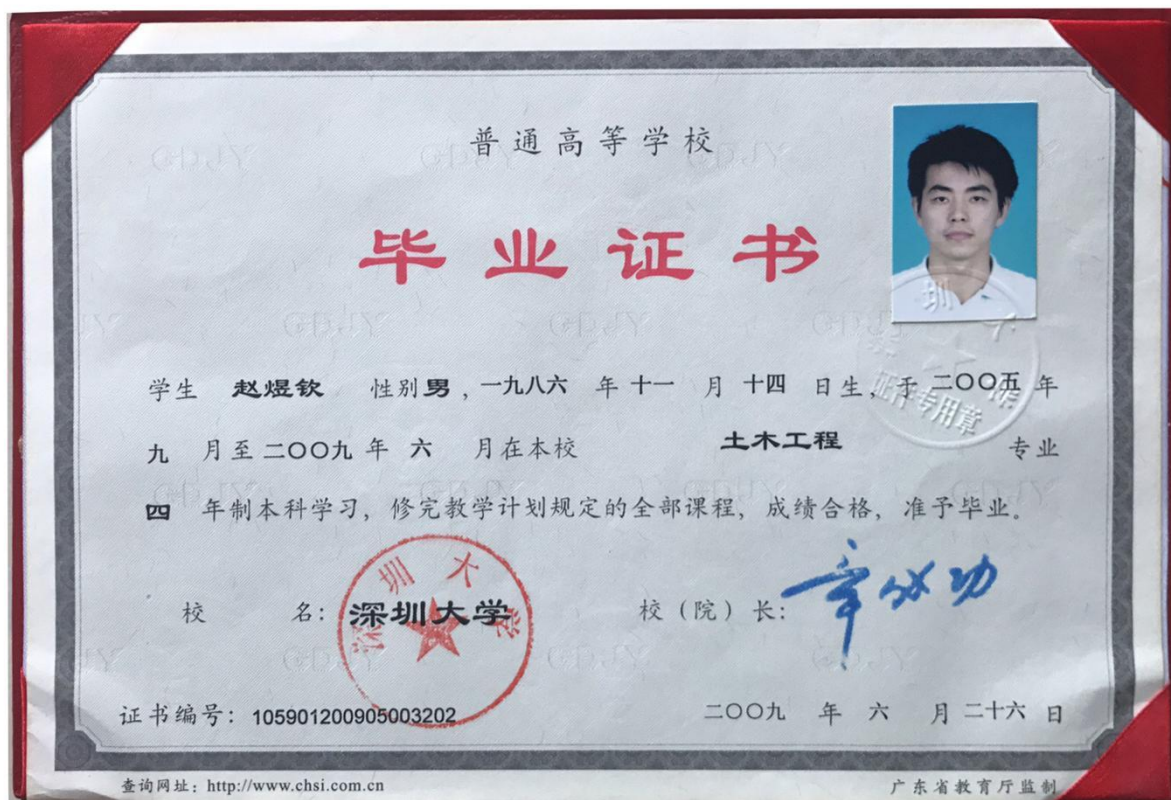 普通高等学校
毕业证书
学生 赵煜钦 性别男，一九八六 年 十一 月 十四 日生，于 二〇〇五 年
九 月至 二〇〇九 年 六 月在本校 土木工程 专业
四 年制本科学习，修完教学计划规定的全部课程，成绩合格，准予毕业。
校 名：深圳大学 校（院）长：章必功
深圳大学
证书编号：105901200905003202 二〇〇九 年 六 月 二十六 日
查询网址：http://www.chsi.com.cn 广东省教育厅监制
圳大
证件专用章